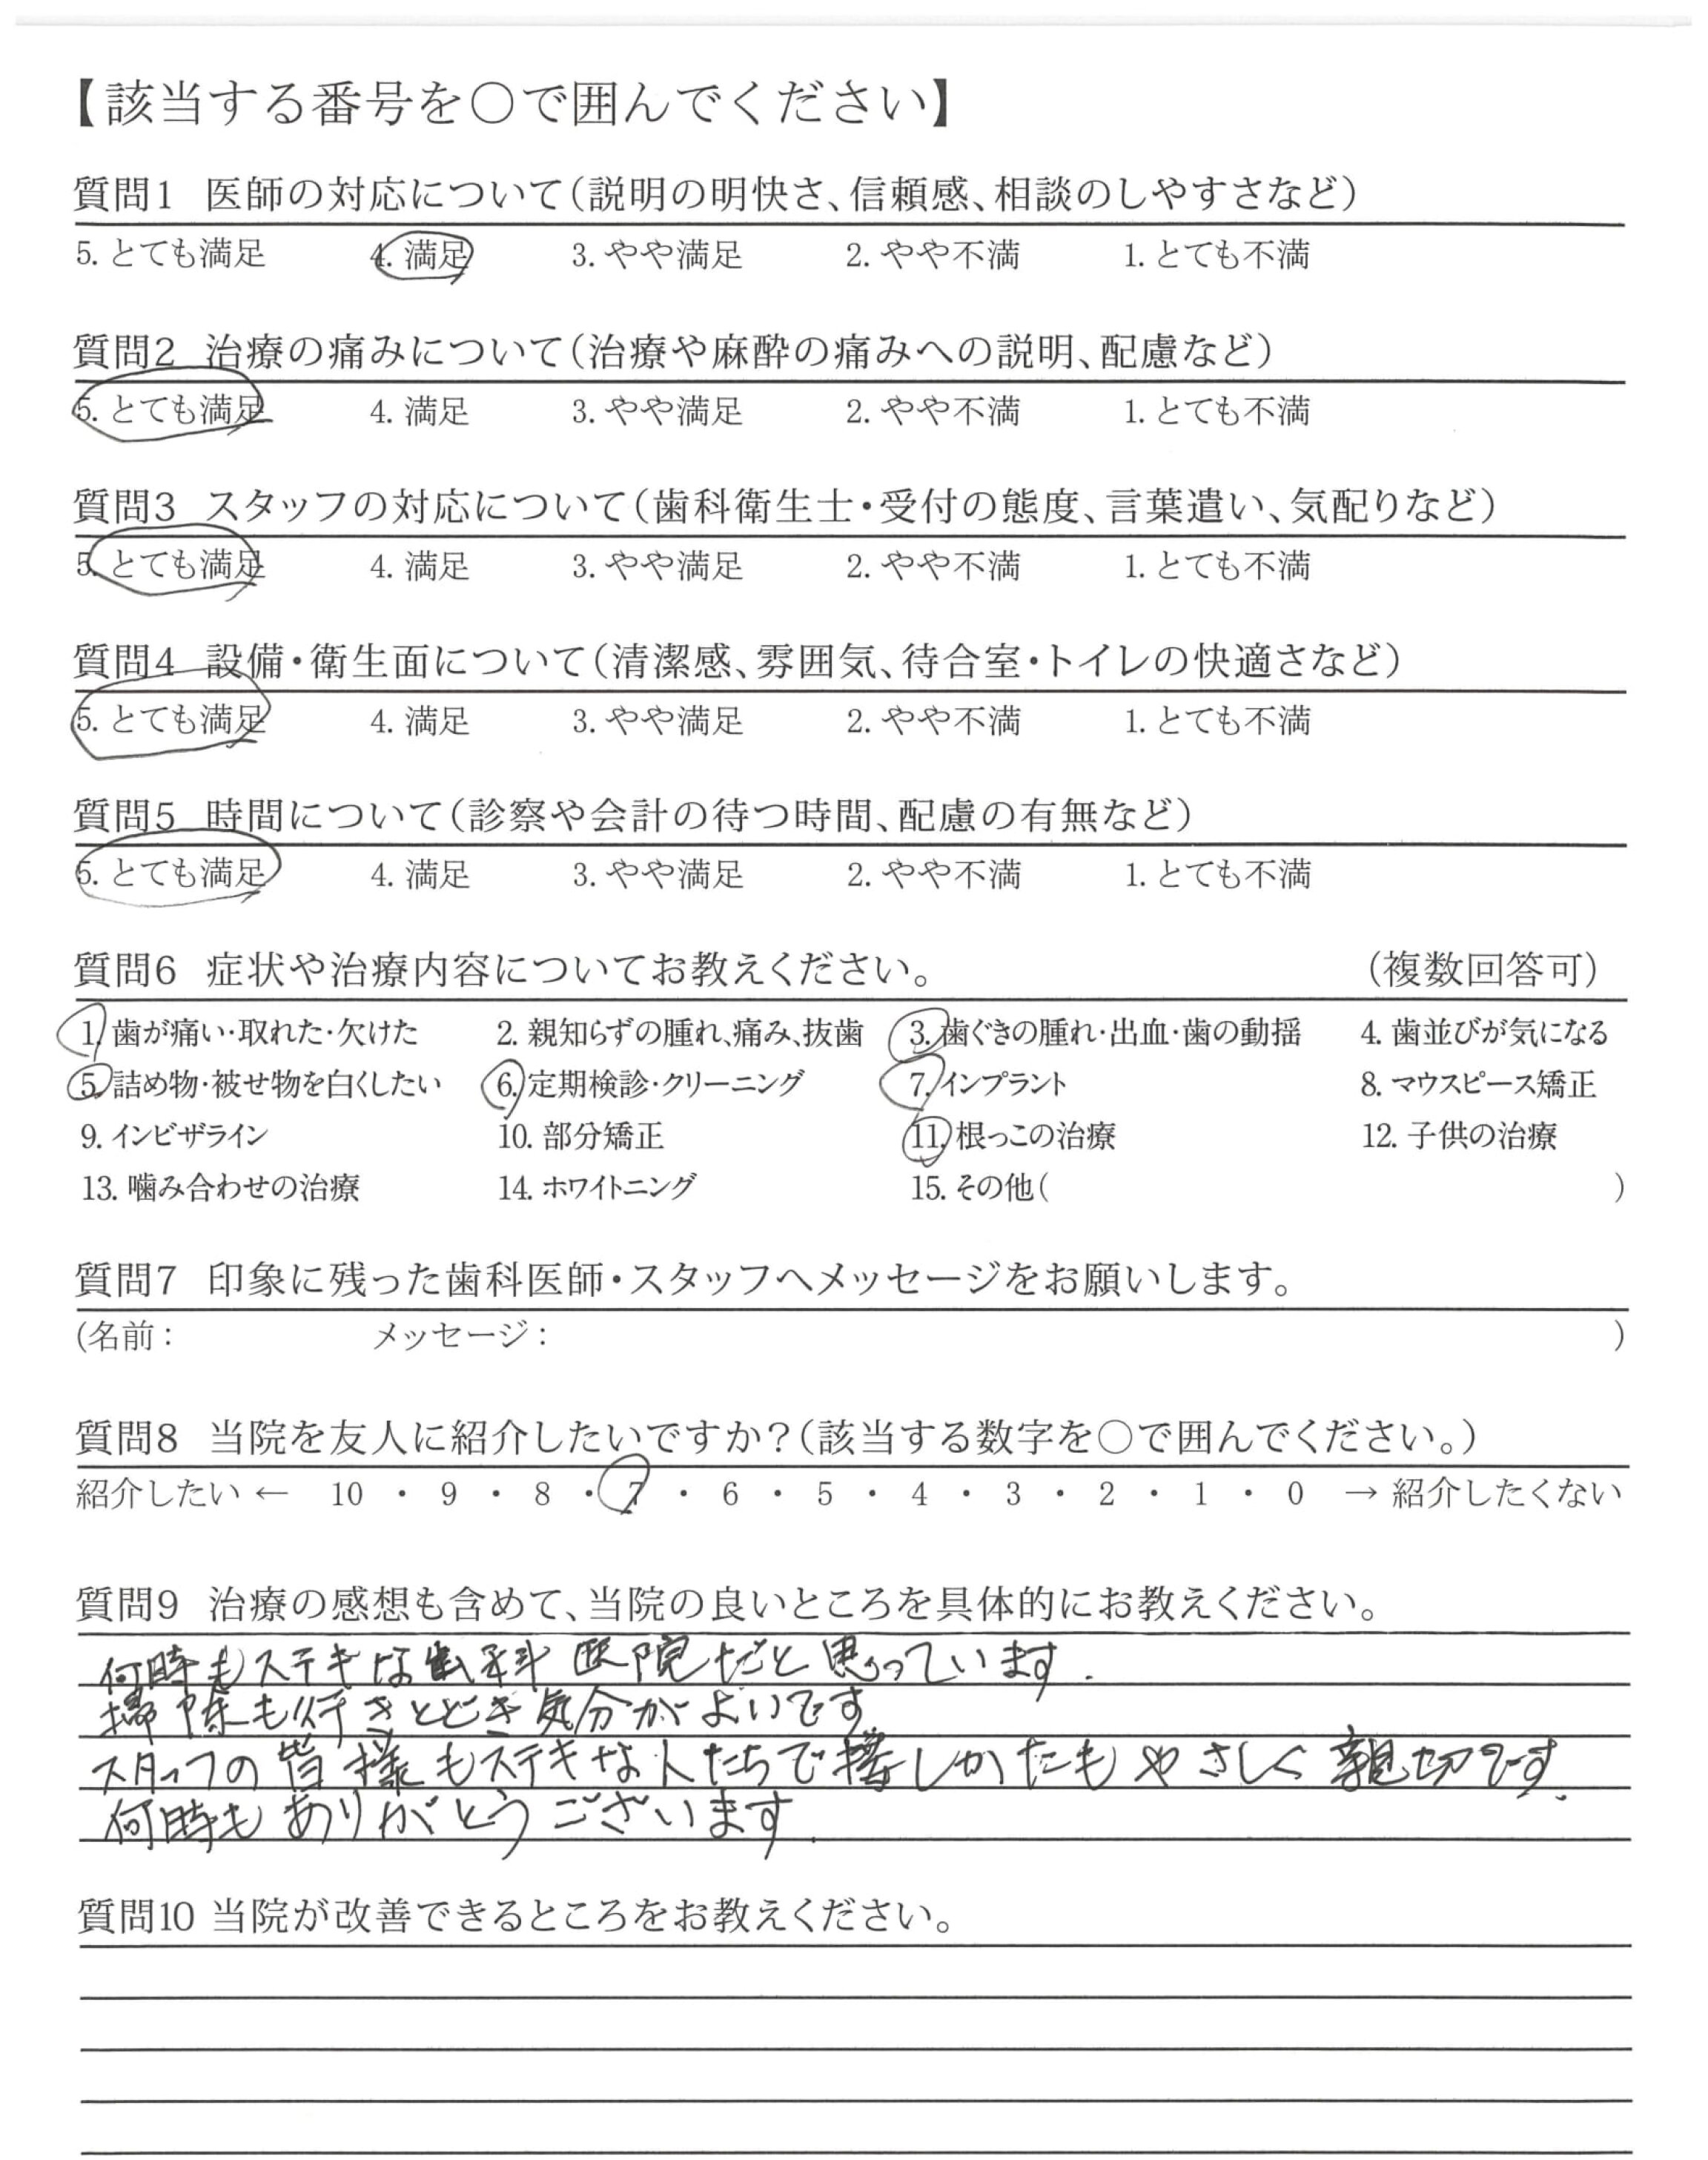 【該当する番号を○で囲んでください】
質問1 医師の対応について(説明の明快さ、信頼感、相談のしやすさなど)
5. とても満足 4. 満足 3. やや満足 2. やや不満 1. とても不満
質問2 治療の痛みについて(治療や麻酔の痛みへの説明、配慮など)
5. とても満足 4. 満足 3. やや満足 2. やや不満 1. とても不満
質問3 スタッフの対応について(歯科衛生士・受付の態度、言葉遣い、気配りなど)
5. とても満足 4. 満足 3. やや満足 2. やや不満 1. とても不満
質問4 設備・衛生面について(清潔感、雰囲気、待合室・トイレの快適さなど)
5. とても満足 4. 満足 3. やや満足 2. やや不満 1. とても不満
質問5 時間について(診察や会計の待つ時間、配慮の有無など)
5. とても満足 4. 満足 3. やや満足 2. やや不満 1. とても不満
質問6 症状や治療内容についてお教えください。 (複数回答可)
1. 歯が痛い・取れた・欠けた 2. 親知らずの腫れ、痛み、抜歯 3. 歯ぐきの腫れ・出血・歯の動揺 4. 歯並びが気になる
5. 詰め物・被せ物を白くしたい 6. 定期検診・クリーニング 7. インプラント 8. マウスピース矯正
9. インビザライン 10. 部分矯正 11. 根っこの治療 12. 子供の治療
13. 噛み合わせの治療 14. ホワイトニング 15. その他( )
質問7 印象に残った歯科医師・スタッフへメッセージをお願いします。
(名前: メッセージ: )
質問8 当院を友人に紹介したいですか?(該当する数字を○で囲んでください。)
紹介したい ← 10 ・ 9 ・ 8 ・ 7 ・ 6 ・ 5 ・ 4 ・ 3 ・ 2 ・ 1 ・ 0 → 紹介したくない
質問9 治療の感想も含めて、当院の良いところを具体的にお教えください。
何時もステキな歯科医院だと思っています.
掃除も行きとどき気分がよいです
スタッフの皆様もステキな人たちで接しかたもやさしく親切です.
何時もありがとうございます.
質問10 当院が改善できるところをお教えください。